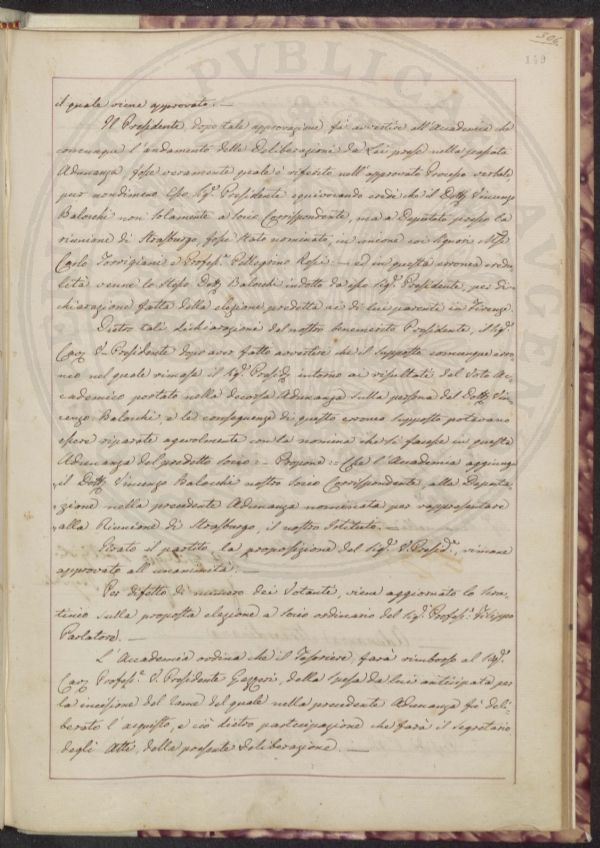 506.
149
il quale viene approvato. —
Il Presidente dopo tale approvazione fà avvertire all'Accademia che
comunque l'andamento delle Deliberazioni da Lui prese nella passata
Adunanza, fosse veramente quale è riferito nell'approvato Processo verbale
pur nondimeno esso Sig.r Presidente equivocando credè che il Dott. Vincenzo
Balocchi non solamente a Socio Corrispondente, ma a Deputato presso la
riunione di Strasburgo, fosse stato nominato, in unione coi Signori
Carlo Torrigiani e Profess.r Pellegrino Rossi: — ed in questa erronea credu
lità venne lo stesso Dott. Balocchi indotto da esso Sig.r Presidente, per di
chiarazione fatta della elezione predetta ai di lui parente in Firenze.
Dietro tali dichiarazioni del nostro benemerito Presidente, il Sig.r
Cav. V. Presidente dopo aver fatto avvertire che il supposto comunque erro
neo nel quale rimase il Sig.r Presid. intorno ai risultati del Voto Ac
cademico portato nella decorsa Adunanza sulla persona del Dott. Vin
cenzo Balocchi, e le conseguenze di questo erroneo supposto potevano
essere riparate agevolmente con la nomina che si facesse in questa
Adunanza del predetto Socio — Propone — Che l'Accademia aggiung
„ il Dott. Vincenzo Balocchi nostro Socio Corrispondente, alla Deputa
„ zione nella precedente Adunanza nominata per rappresentare
„ alla Riunione di Strasburgo, il nostro Istituto. —
Mosso il partito, la proposizione del Sig.r V. Presid.e, rimane
approvata all'unanimità. —
Per difetto di numero dei Votanti, viene aggiornato lo Scru
tinio sulla proposta elezione a Socio ordinario del Sig.r Profess.r Filippo
Parlatore. —
L'Accademia ordina che il Tesoriere, farà rimborso al Sig.r
Cav. Profess.r V. Presidente Gazzeri, della spesa da lui anticipata per
la incisione del rame del quale nella precedente Adunanza fu deli
berato l'acquisto, e ciò dietro partecipazione che farà il Segretario
degli Atti, della presente deliberazione. —
PUBLICA
AUGEN